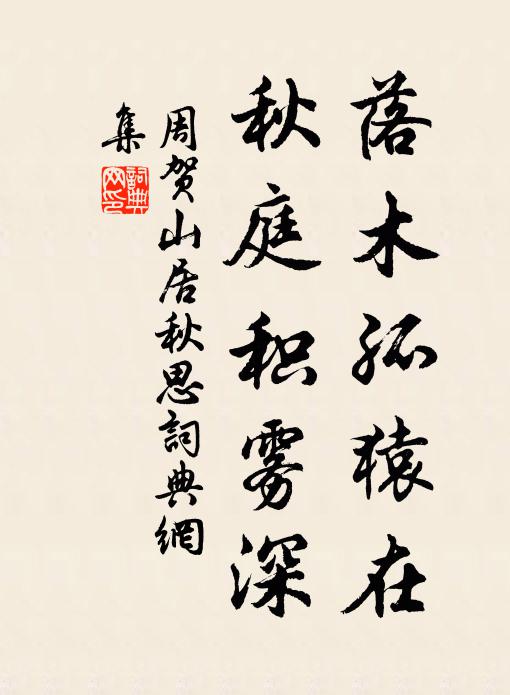 落木孤猿在
秋庭积雾深
周贺山居秋思詞典網
集
詞典
网印